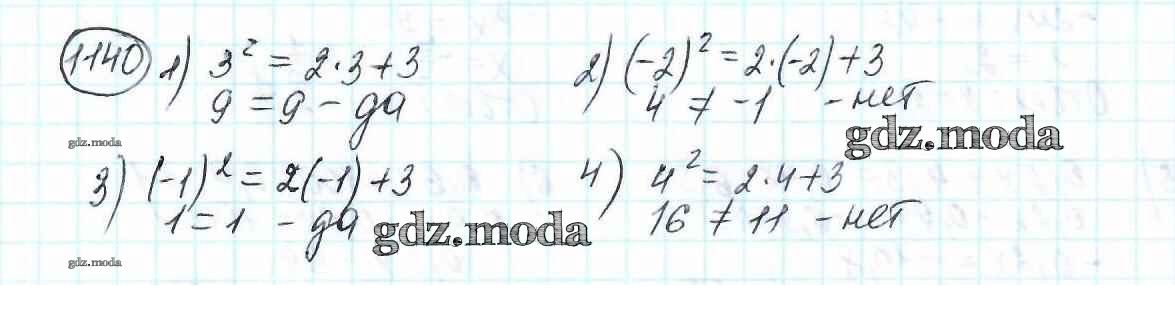 1140 1) 3² = 2·3+3 2) (-2)² = 2·(-2)+3
9 = 9 - да 4 ≠ -1 - нет
gdz.moda gdz.moda
3) (-1)² = 2(-1)+3 4) 4² = 2·4+3
1=1 - да 16 ≠ 11 - нет
gdz.moda
gdz.moda